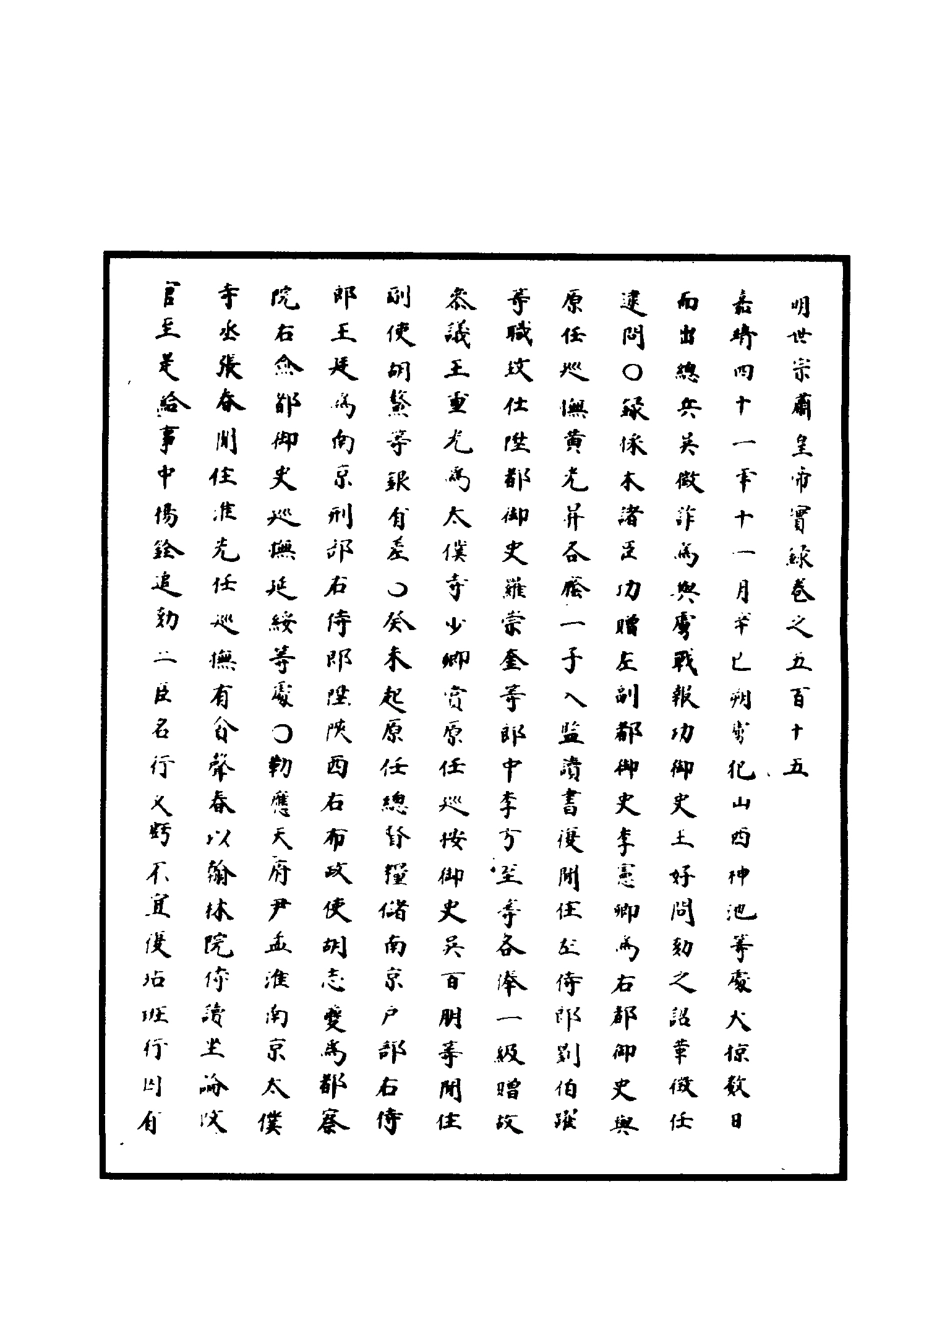 明世宗肅皇帝實錄卷之五百十五
嘉靖四十一年十一月辛巳朔虜犯山西神池等處大掠数日
而出總兵吳徵詐為與虜戰報功御史王好問劾之詔革徵任
逮問○錄採木諸臣功贈左副都御史李憲卿為右都御史與
原任巡撫黄光昇各廕一子入監讀書復閒住左侍郎劉伯躍
等職致仕陞都御史羅崇奎等郎中李方至等各俸一級贈故
叅議王重光為太僕寺少卿賞原任巡按御史吳百朋等閒住
副使胡鰲等銀有差○癸未起原任總督糧儲南京户部右侍
郎王廷為南京刑部右侍郎陞陝西右布政使胡志夔為都察
院右僉都御史巡撫延綏等處○勒應天府尹孟淮南京太僕
寺丞張春閒住淮先任巡撫有貪聲春以翰林院侍讀坐論改
官至是給事中楊銓追劾二臣名行久虧不宜復玷班行因有